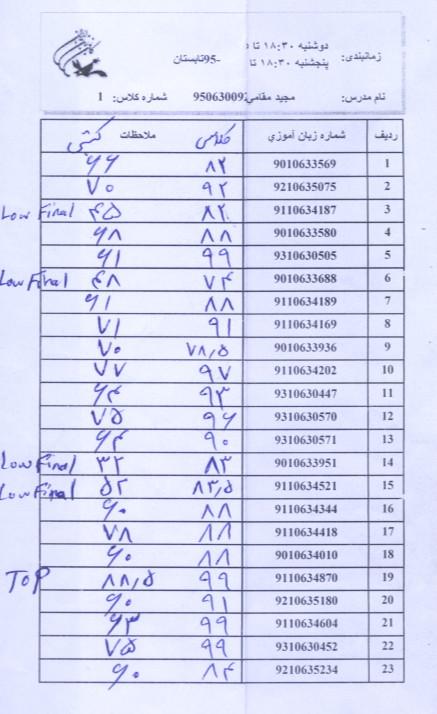 دوشنبه ۱۸:۳۰ تا
زمانبندی: پنجشنبه ۱۸:۳۰ تا 95-تابستان
نام مدرس: مجید مقامی 950630092 شماره کلاس: 1
ردیف شماره زبان آموزي کلاسی ملاحظات کتبی
1 9010633569 ۸۲ ۶۶
2 9210635075 ۹۲ ۷۰
3 9110634187 ۸۲ ۴۵ Low Final
4 9010633580 ۸۸ ۶۸
5 9310630505 ۹۹ ۶۱
6 9010633688 ۷۴ ۴۸ Low Final
7 9110634189 ۸۸ ۶۱
8 9110634169 ۹۱ ۷۱
9 9010633936 ۷۸,۵ ۷۰
10 9110634202 ۹۷ ۷۷
11 9310630447 ۹۳ ۶۴
12 9310630570 ۹۶ ۷۵
13 9310630571 ۹۰ ۶۴
14 9010633951 ۸۳ ۳۲ Low Final
15 9110634521 ۸۳,۵ ۵۲ Low Final
16 9110634344 ۸۸ ۶۰
17 9110634418 ۸۸ ۷۸
18 9010634010 ۸۸ ۶۰
19 9110634870 ۹۹ ۸۸,۵ TOP
20 9210635180 ۹۱ ۶۰
21 9110634604 ۹۹ ۶۳
22 9310630452 ۹۹ ۷۵
23 9210635234 ۸۴ ۶۰